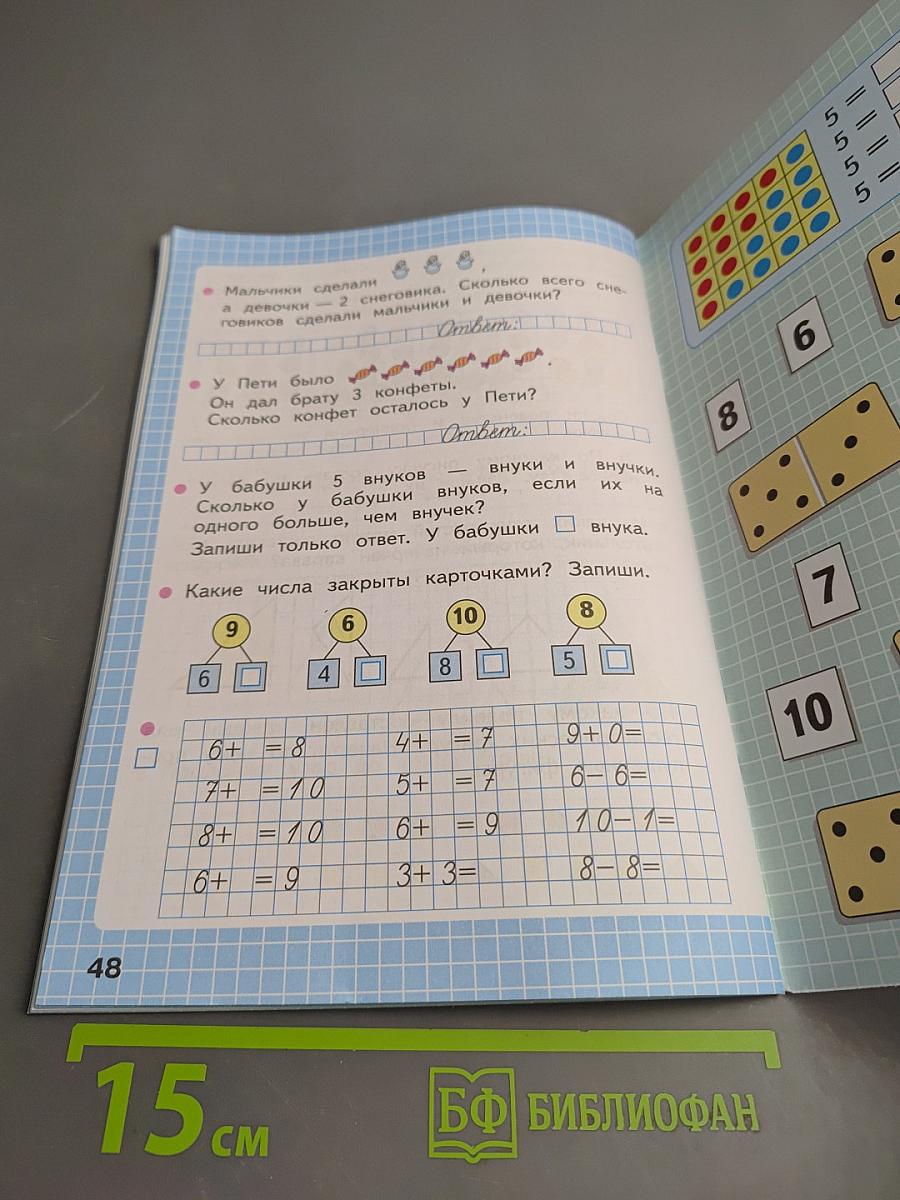 Мальчики сделали ,
а девочки — 2 снеговика. Сколько всего сне-
говиков сделали мальчики и девочки?
Ответ:
У Пети было .
Он дал брату 3 конфеты.
Сколько конфет осталось у Пети?
Ответ:
У бабушки 5 внуков — внуки и внучки.
Сколько у бабушки внуков, если их на
одного больше, чем внучек?
Запиши только ответ. У бабушки внука.
Какие числа закрыты карточками? Запиши.
9 6 10 8
6 4 8 5
6+ =8 4+ =7 9+0=
7+ =10 5+ =7 6−6=
8+ =10 6+ =9 10−1=
6+ =9 3+3= 8−8=
48
5=
5=
5=
5=
6
8
7
10
15 см
БФ БИБЛИОФАН